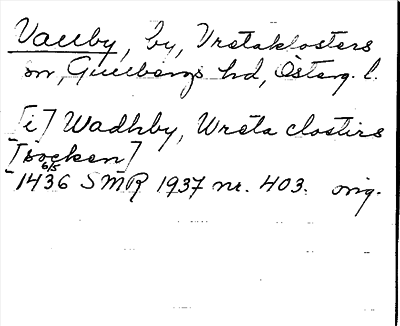 Valby, by, Vretaklosters
sn, Gullbergs hd, Österg. l.
[i] Wadhby, Wreta closters
[socken]
1436 6/5 SMR 1937 nr. 403. orig.